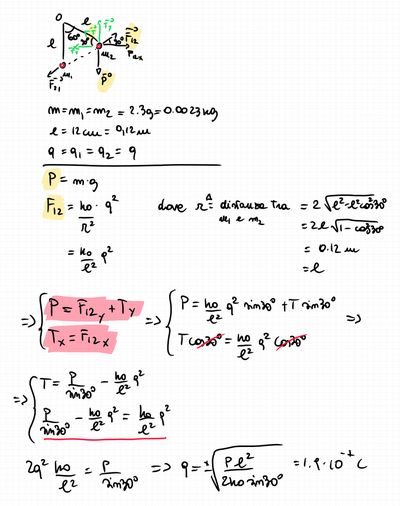 O
l
l
60°
30°
30°
F₁₂
F₁₂ₓ
m₂
m₁
F₂₁
P
m = m₁ = m₂ = 2.3g = 0.0023 kg
l = 12 cm = 0,12 m
q = q₁ = q₂ = q
P = m·g
F₁₂ = k₀/r² · q² dove r ≜ distanza tra m₁ e m₂ = 2√(l²-l²cos²30°)
= 2l√(1-cos²30°)
= k₀/l² q² = 0.12 m
= l
⇒ { P = F₁₂ᵧ + Tᵧ ⇒ { P = k₀/l² q² sin30° + T sin30° ⇒
Tₓ = F₁₂ₓ T cos30° = k₀/l² q² cos30°
⇒ { T = P/sin30° - k₀/l² q²
P/sin30° - k₀/l² q² = k₀/l² q²
2q² k₀/l² = P/sin30° ⇒ q = ±√(Pl²/2k₀ sin30°)